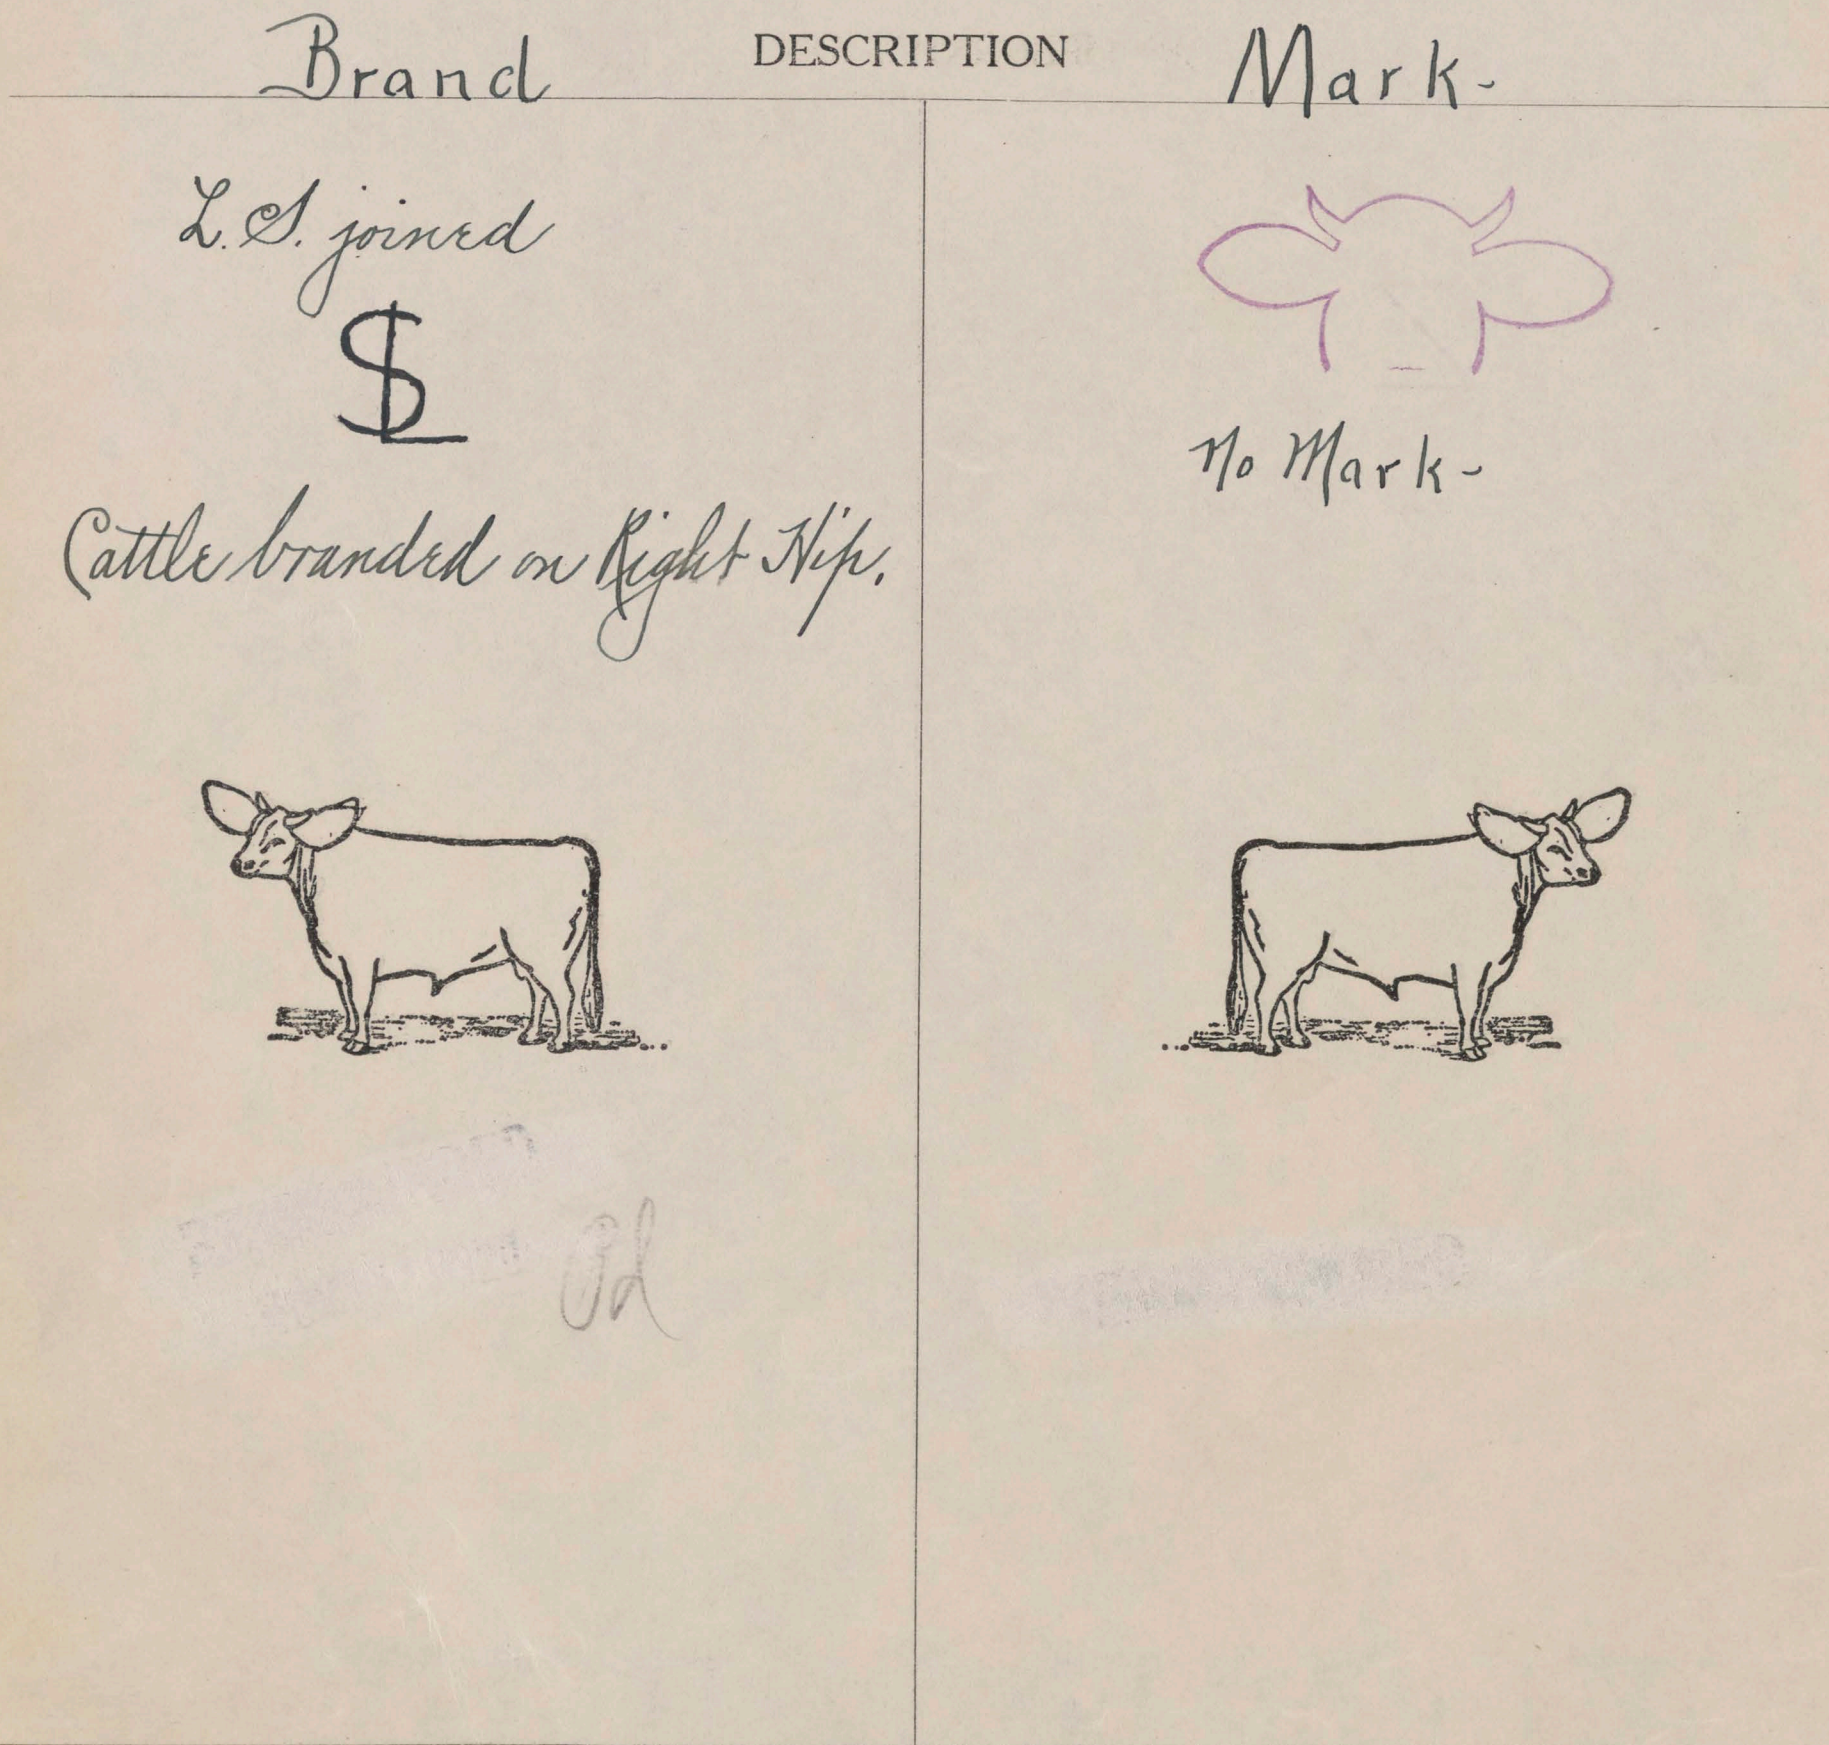 Brand DESCRIPTION Mark-
L. S. joined
Cattle branded on Right Hip.
No Mark-